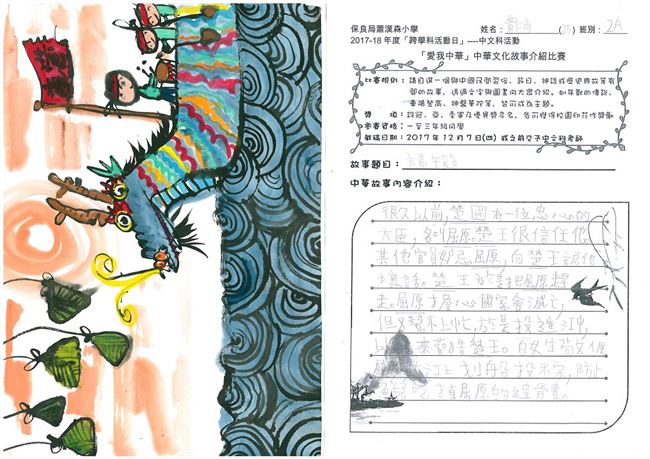 保良局蕭漢森小學
姓名：
(25) 班別：2A
2017-18 年度「跨學科活動日」----中文科活動
「愛我中華」中華文化故事介紹比賽
比賽規則：請自選一個與中國民間習俗、節日、神話或歷史典故等有
關的故事，透過文字與圖畫向大眾介紹。如年獸的傳說、
重陽登高、神醫華陀等，皆可成為主題。
獎　　項：設冠、亞、季軍及優異獎多名，各可獲得校園印花作獎勵
參賽資格：一至三年級同學
截稿日期：2017 年 12 月 7 日(四) 或之前交予中文科老師
故事題目：端午節
中華故事內容介紹：
很久以前，楚國有一位忠心的
大臣，名叫屈原楚王很信任他
其他官員妒忌屈原，向楚王說他
壞話。楚王就把屈原趕
走。屈原擔心國家會滅亡，
但又幫不上忙，於是投進江中，
以 來勸告楚王。百姓
江上划船投米 ，防止
掉屈原的遺骨。